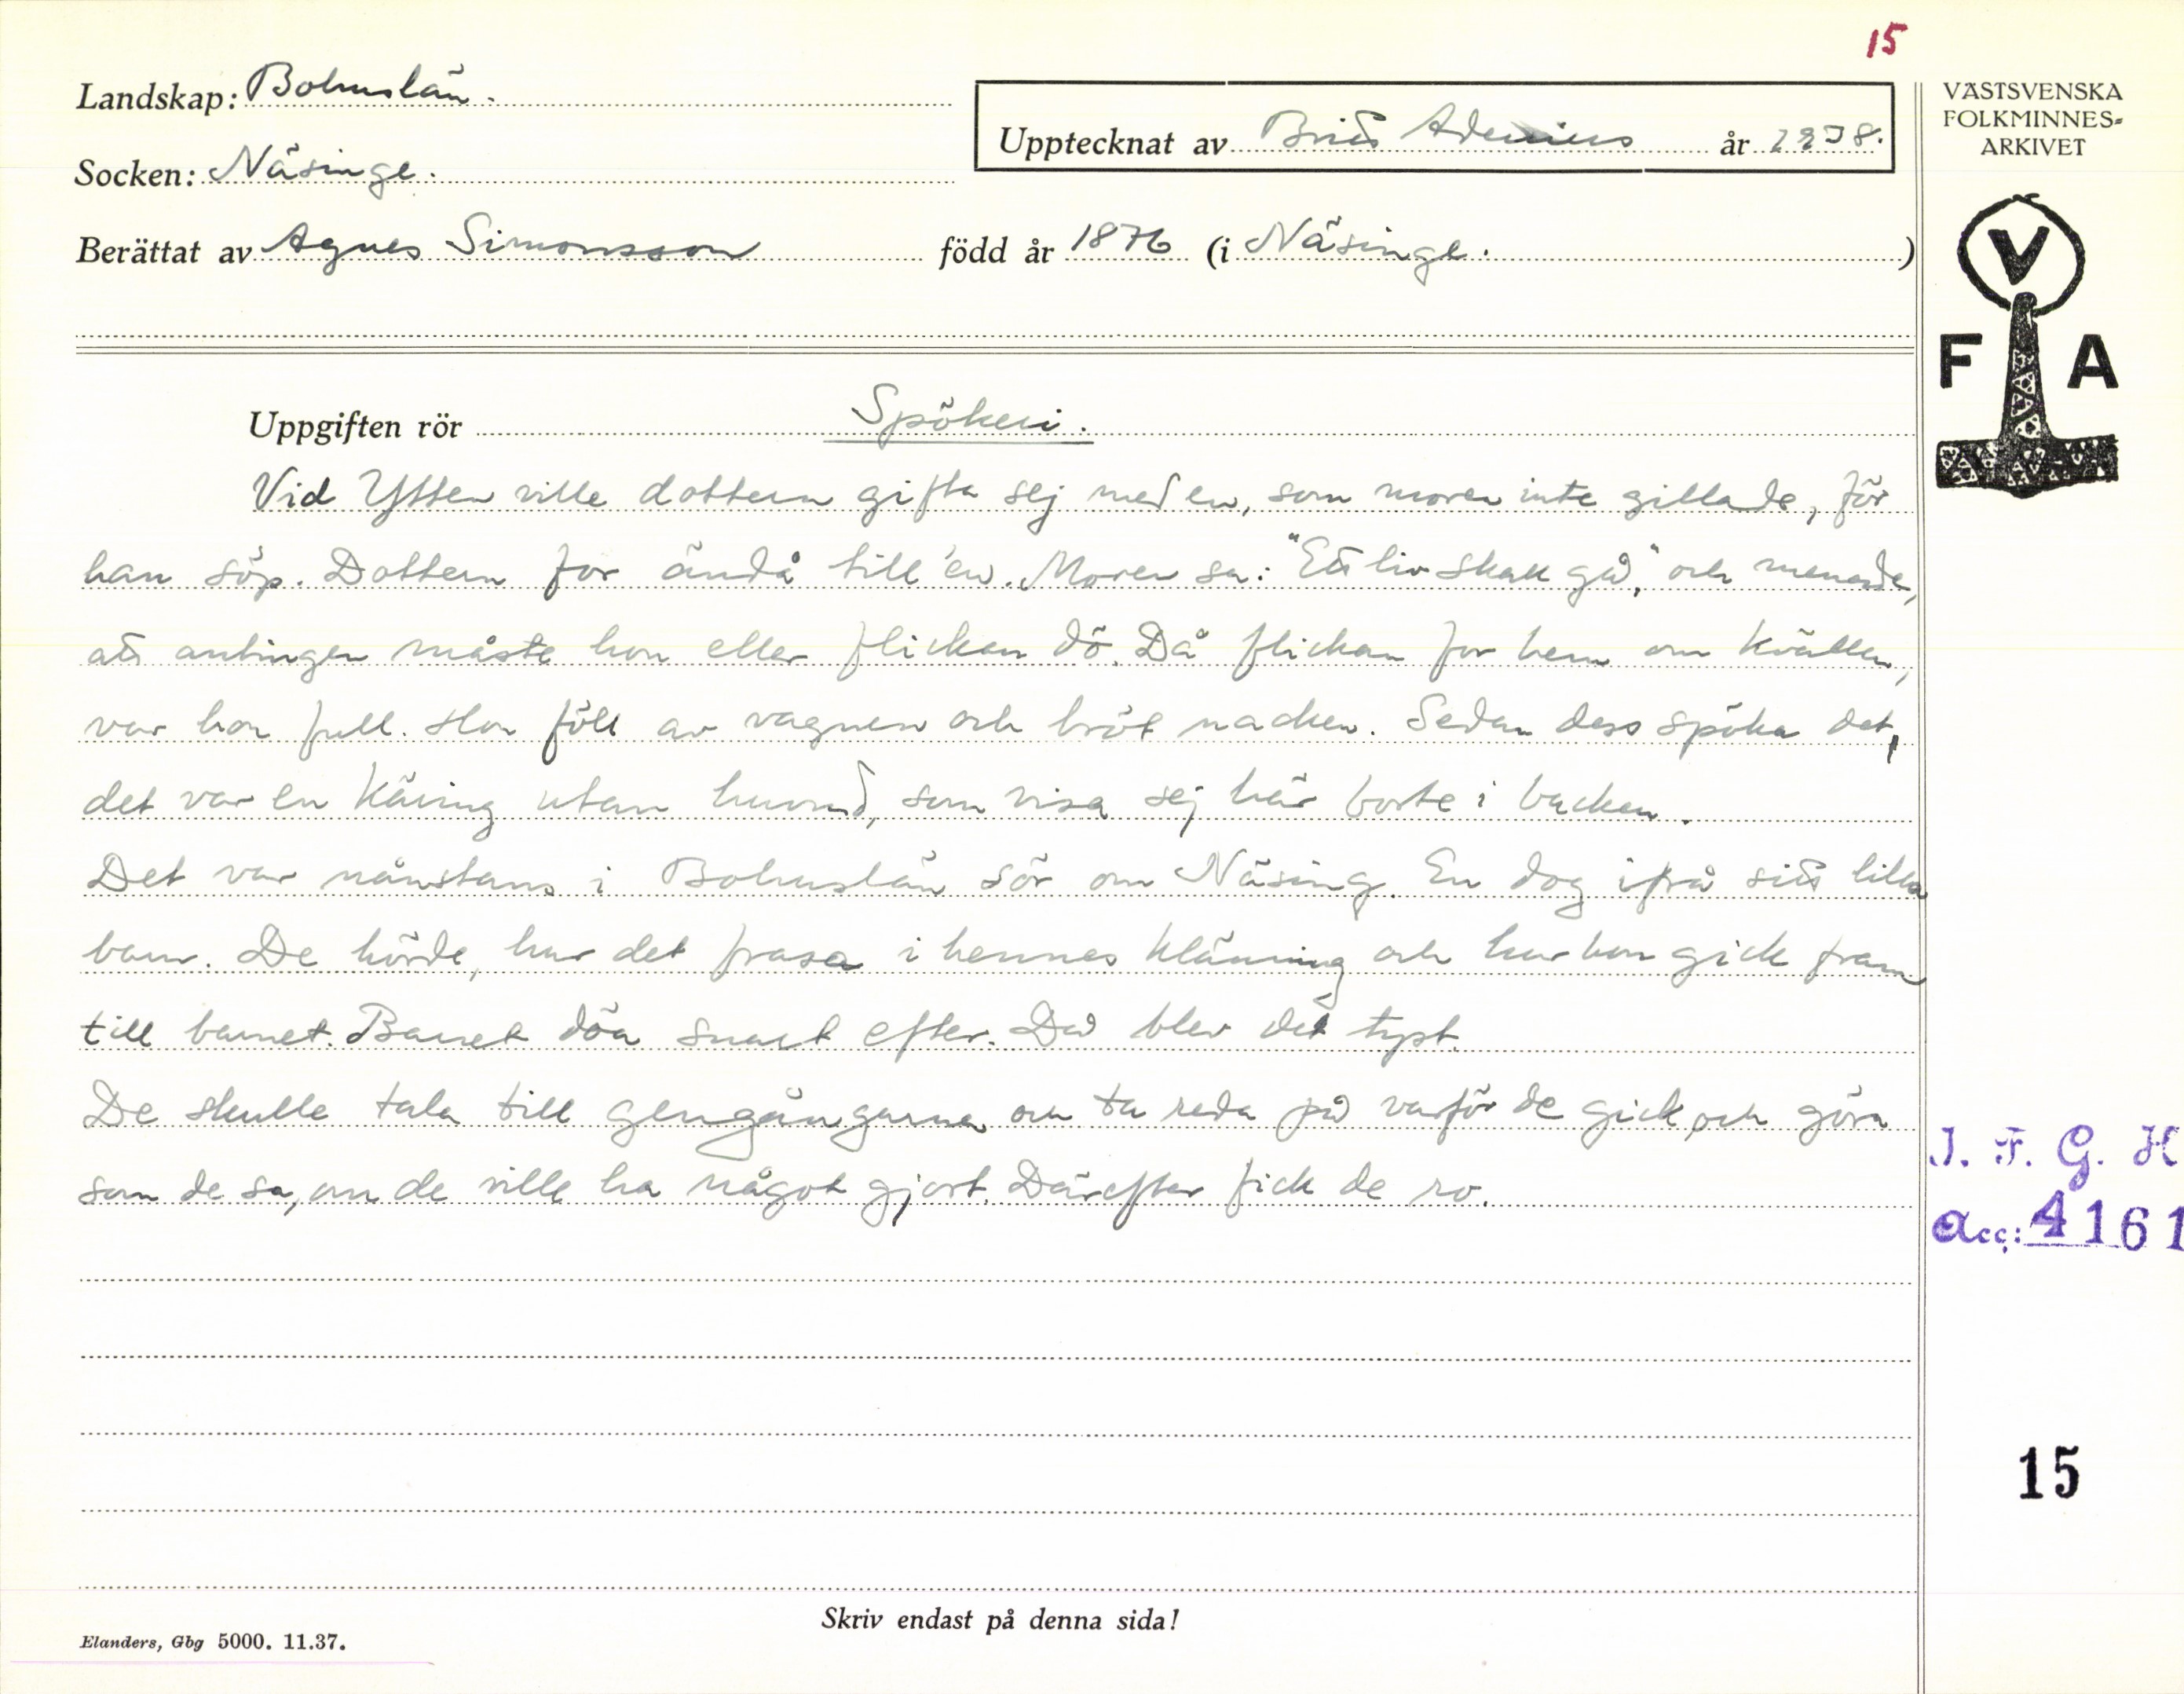 15
Landskap: Bohuslän.
Upptecknat av Britt Adenius år 1938.
Socken: Näsinge.
Berättat av Agnes Simonsson född år 1876 (i Näsinge.)
VÄSTSVENSKA
FOLKMINNES-
ARKIVET
V
F A
Uppgiften rör Spökeri.
Vid Ytten ville dottern gifta sej med en, som moren inte gillade, för
han söp. Dottern for ändå till'en. Moren sa: "Ett liv skall gå," och menade,
att antingen måste hon eller flickan dö. Då flickan for hem om kvällen,
var hon full. Hon föll av vagnen och bröt nacken. Sedan dess spöka det,
det var en käring utan huvud, som visa sej här borte i backen.
Det var nånstans i Bohuslän sör om Näsing. En dog ifrå sitt lilla
barn. De hörde, hur det frasa i hennes klänning och hur hon gick fram
till barnet. Barnet döa snart efter. Då blev det tyst.
De skulle tala till gengångarna om ta reda på varför de gick, och göra
som de sa, om de ville ha något gjort. Därefter fick de ro.
I. F. G. H
Acc: 4161
15
Skriv endast på denna sida!
Elanders, Gbg 5000. 11.37.